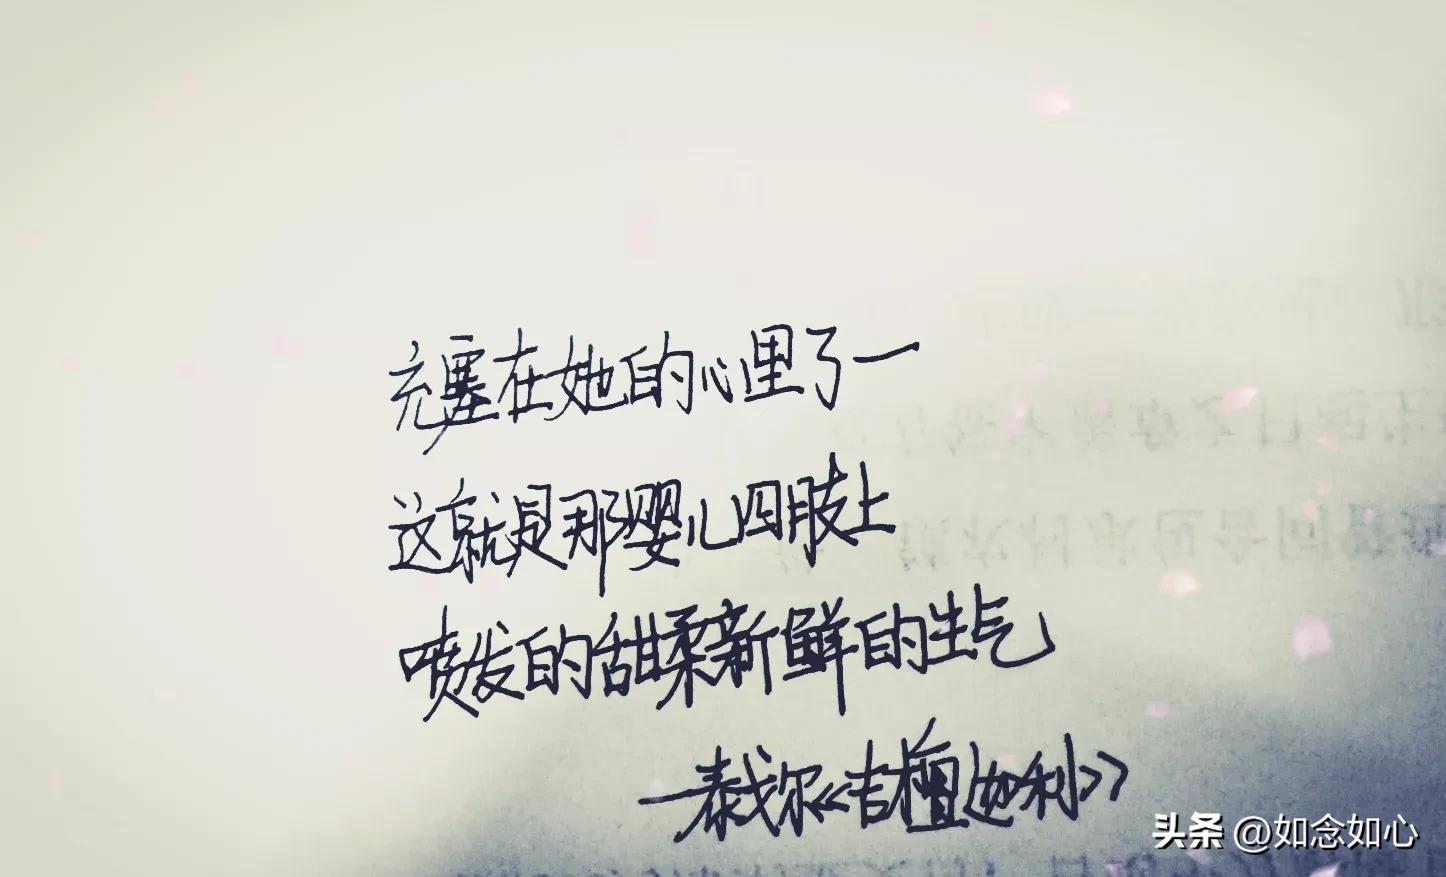 充塞在她的心里了一
这就是那婴儿四肢上
喷发的甜柔新鲜的生气
—泰戈尔《吉檀迦利》
头条 @如念如心